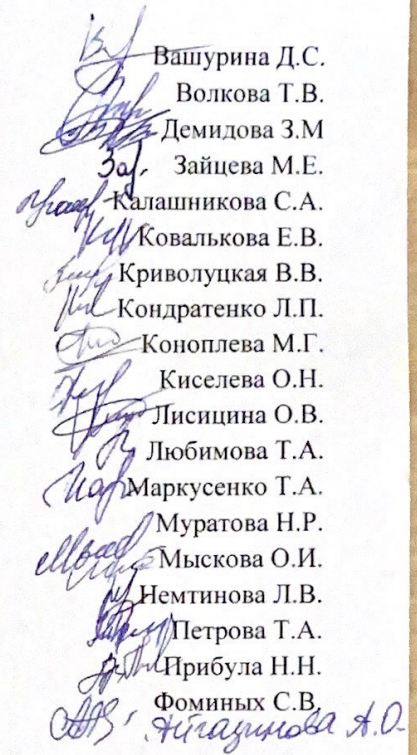 Вашурина Д.С.
Волкова Т.В.
Демидова З.М
Зайцева М.Е.
Калашникова С.А.
Ковалькова Е.В.
Криволуцкая В.В.
Кондратенко Л.П.
Коноплева М.Г.
Киселева О.Н.
Лисицина О.В.
Любимова Т.А.
Маркусенко Т.А.
Муратова Н.Р.
Мыскова О.И.
Немтинова Л.В.
Петрова Т.А.
Прибула Н.Н.
Фоминых С.В.
А.О.